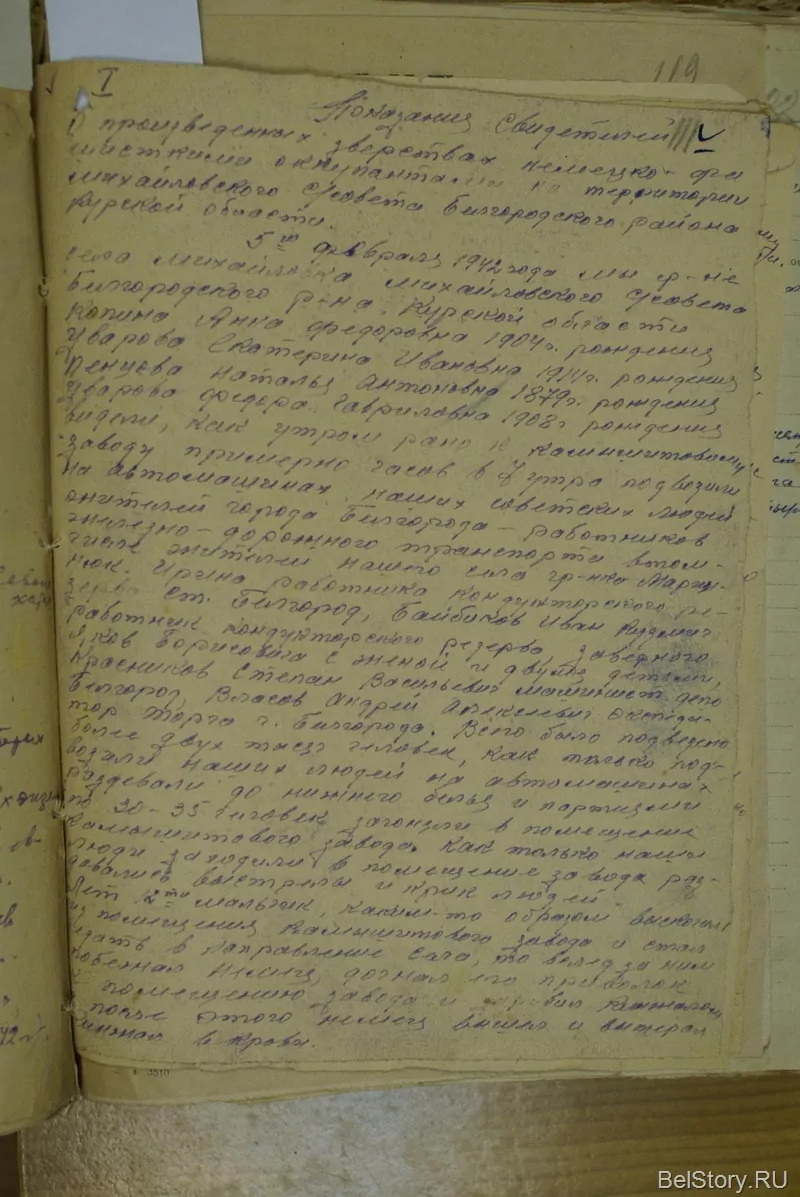 119
I
Показания Свидетелей
О произведенных зверствах немецко-фа
шисткими оккупантами на территории
Михайловского с/совета Белгородского района
Курской области.
5го февраля 1942 года мы гр-не
села Михайловка Михайловского с/совета
Белгородского р-на Курской области
Копина Анна Федоровна 1904г. рождения
Уварова Екатерина Ивановна 1914г. рождения
Пенцова Наталья Антоновна 1879г. рождения
Уварова Федора Гавриловна 1908г рождения
видели, как утром рано к камышитовому
заводу примерно часов в утра подвозили
на автомашинах наших советских людей
жителей города Белгорода - работников
железно-дорожного транспорта втом-
числе жителей нашего села гр-нка
нюк. Ирина работника кондукторского ре-
зерва ст. Белгород, Байбиков Иван Кузмич
работник кондукторского резерва,
Яков Борисовича с женой и двумя детьми,
Красников Степан Васильевич машинист депо
Белгород, Власов Андрей Алексеевич экспеди-
тор Торга г. Белгорода. Всего было подведено
более двух тысяч человек, как только под-
возили наших людей на автомашинах
раздевали до нижнего белья и партиями
по 30-35 человек загоняли в помещение
камышитового завода. Как только наши
люди заходили в помещение завода раз-
давались выстрелы и крик людей.
Лет 12ти мальчик, каким-то образом выскочил
из помещения камышитового завода и стал
бежать в направление села, то вслед за ним
побежал немец, догнал его приволок
к помещению завода и кинжалом
после этого немец вышел и вытерал
кинжал в крови.
3510
BelStory.RU